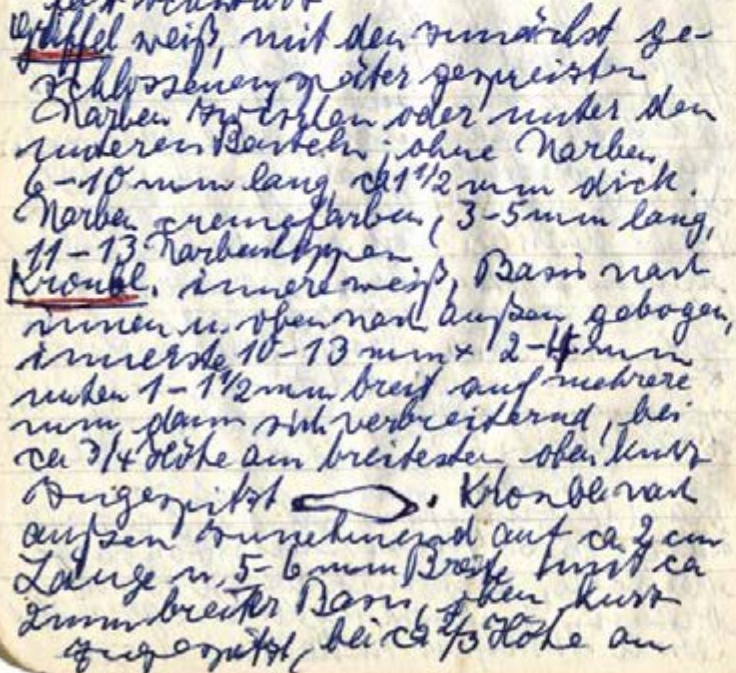 Griffel weiß, mit den zunächst ge-
schlossenen später gespreizten
Narben zwischen oder unter den
unteren Beuteln; ohne Narben
6-10 mm lang ca 1 1/2 mm dick.
Narben cremefarben, 3-5 mm lang,
11-13 Narbenlappen
Kronbl. innere weiß, Basis nach
innen u. oben nach außen gebogen,
innerste 10-13 mm x 2-4 mm
unten 1-1 1/2 mm breit auf mehrere
mm, dann sich verbreiternd, bei
ca 3/4 Höhe am breitesten oben kurz
zugespitzt . Kronbl. nach
außen zunehmend auf ca 2 cm
Länge u. 5-6 mm Breite mit ca
2 mm breiter Basis, oben kurz
zugespitzt, bei ca 2/3 Höhe am